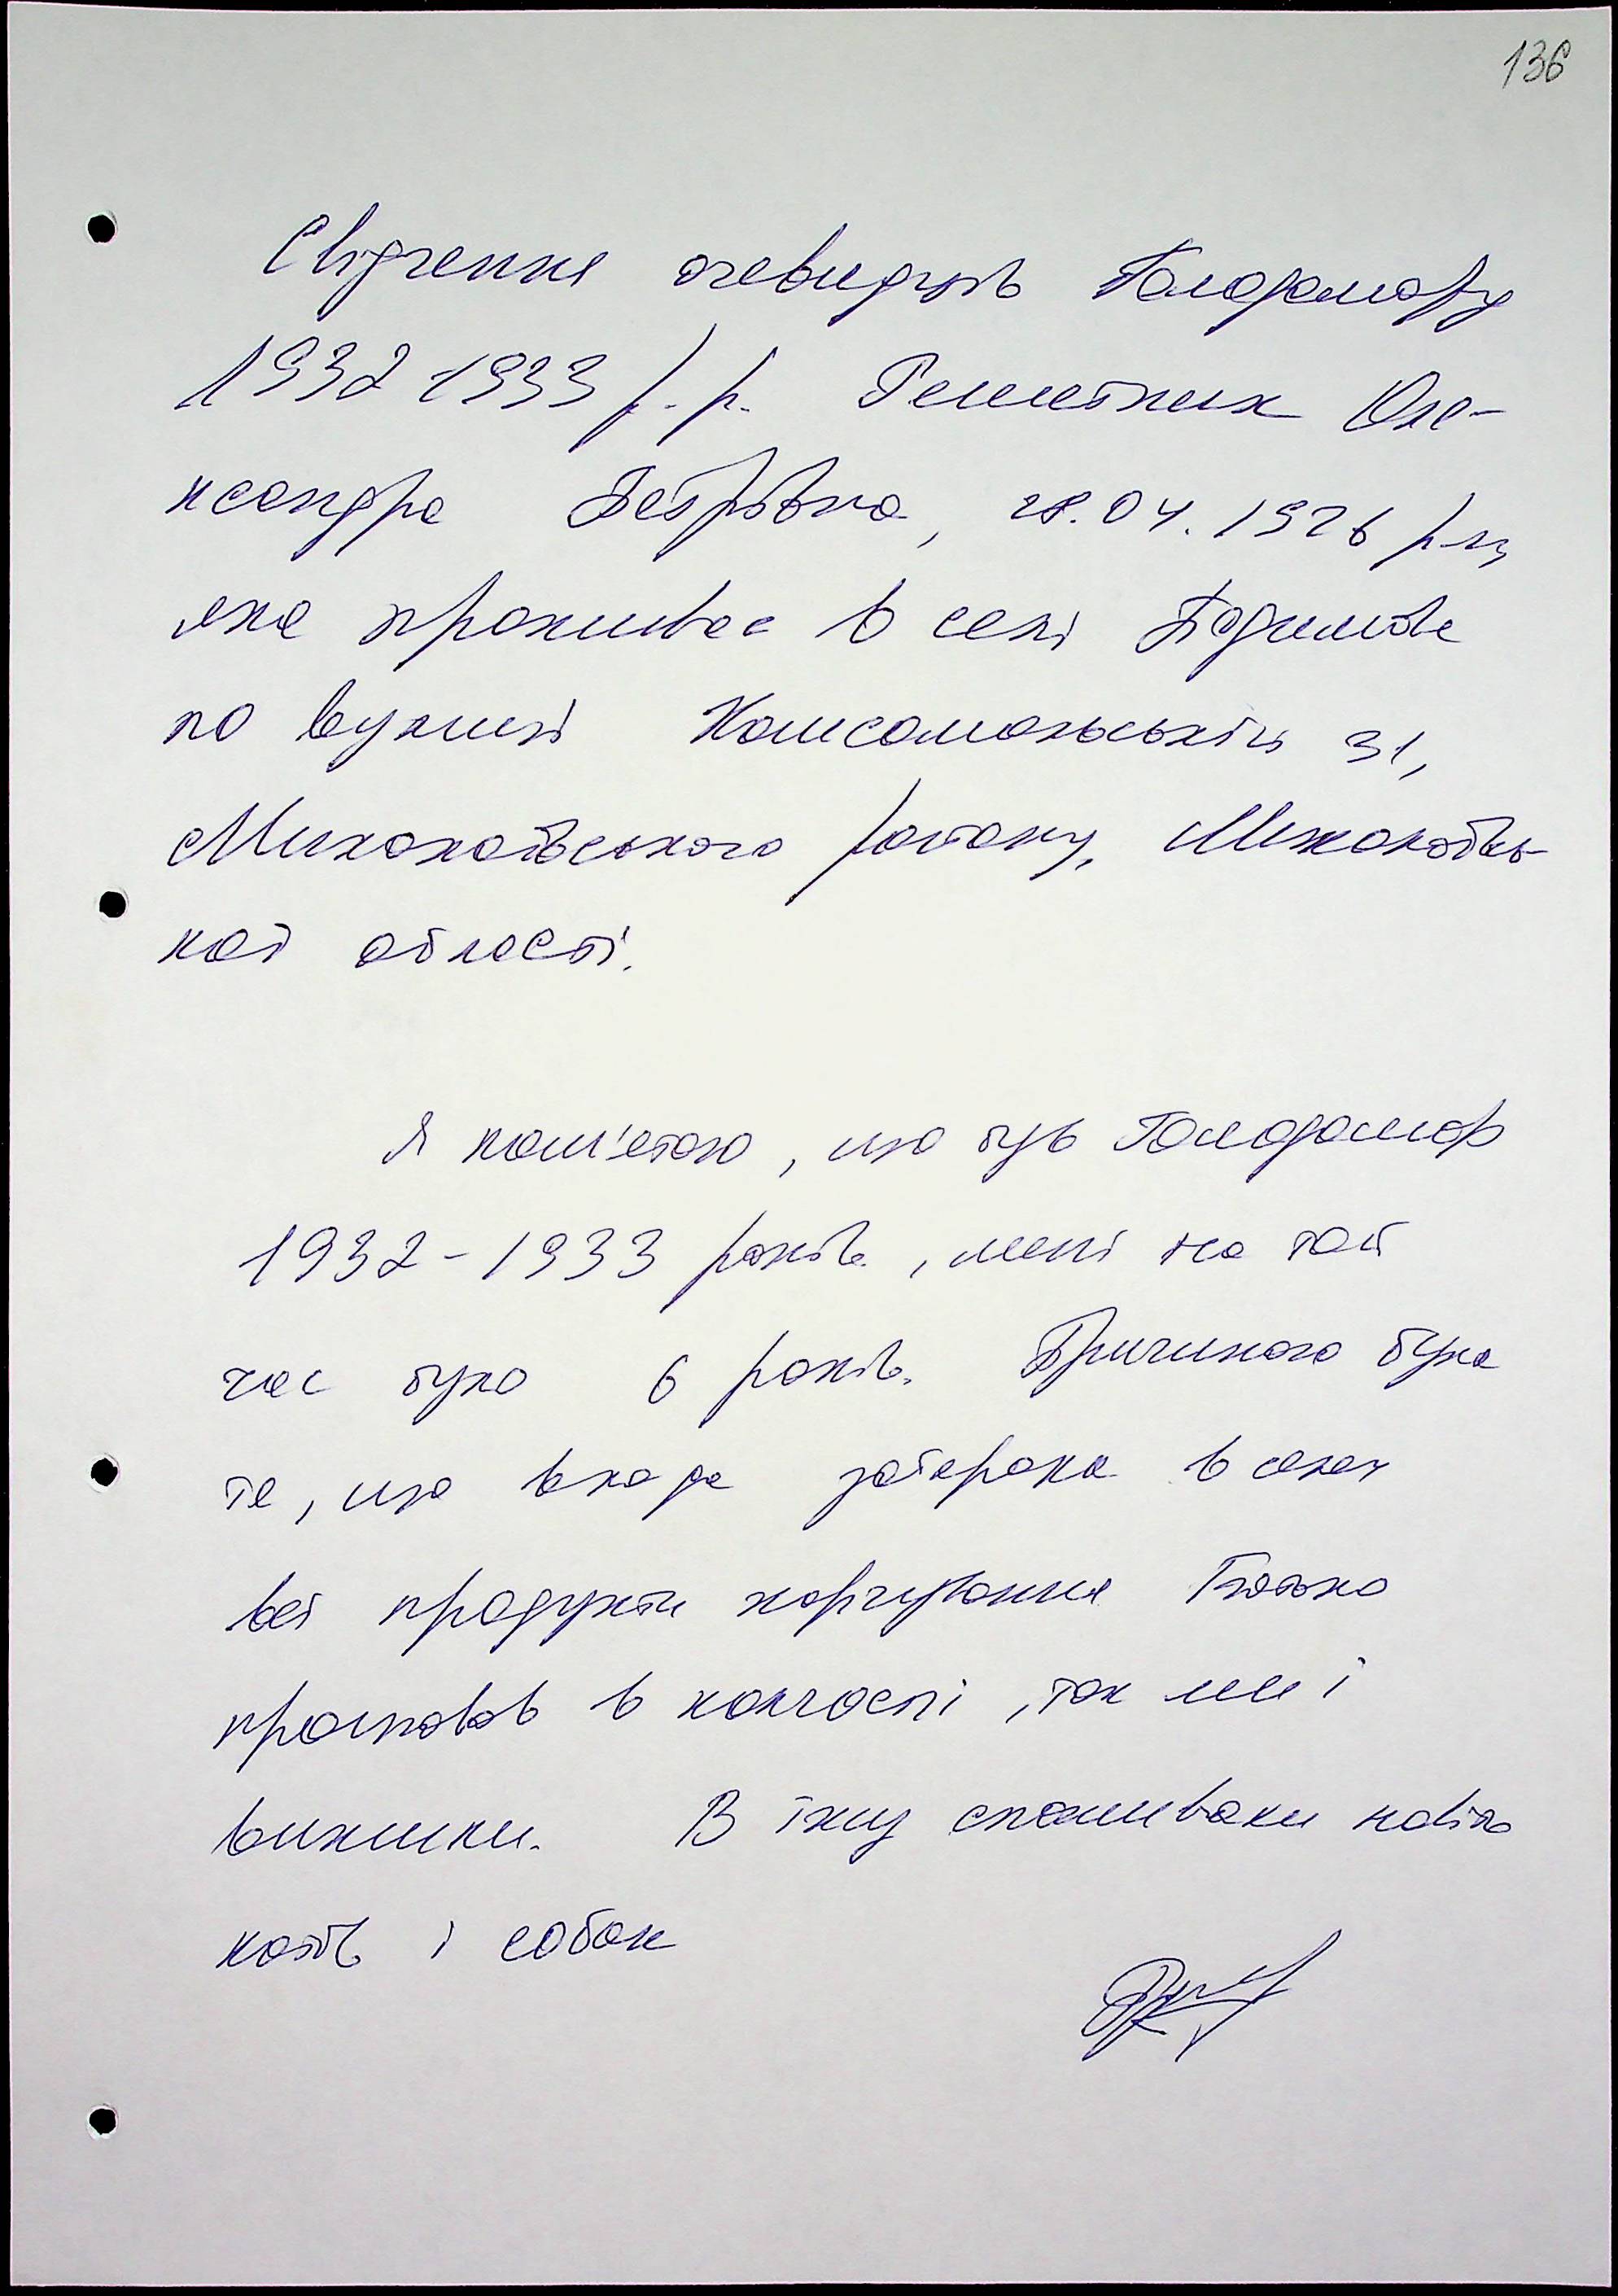 136
Свідчення очевидців Голодомору
1932 1933 р.р. Решетник Оле-
ксандра Петрівна, 28.04.1926 р.н,
яка проживає в селі
по вулиці Комсомольській 31,
Миколаївського району, Миколаївсь-
кої області.
Я пам'ятаю, що був Голодомор
1932-1933 років, мені на той
час було 6 років. Причиною була
те, що влада забирала в селах
всі продукти харчування Батько
працював в колгоспі, так ми і
вижили. В їжу споживали навіть
котів і собак